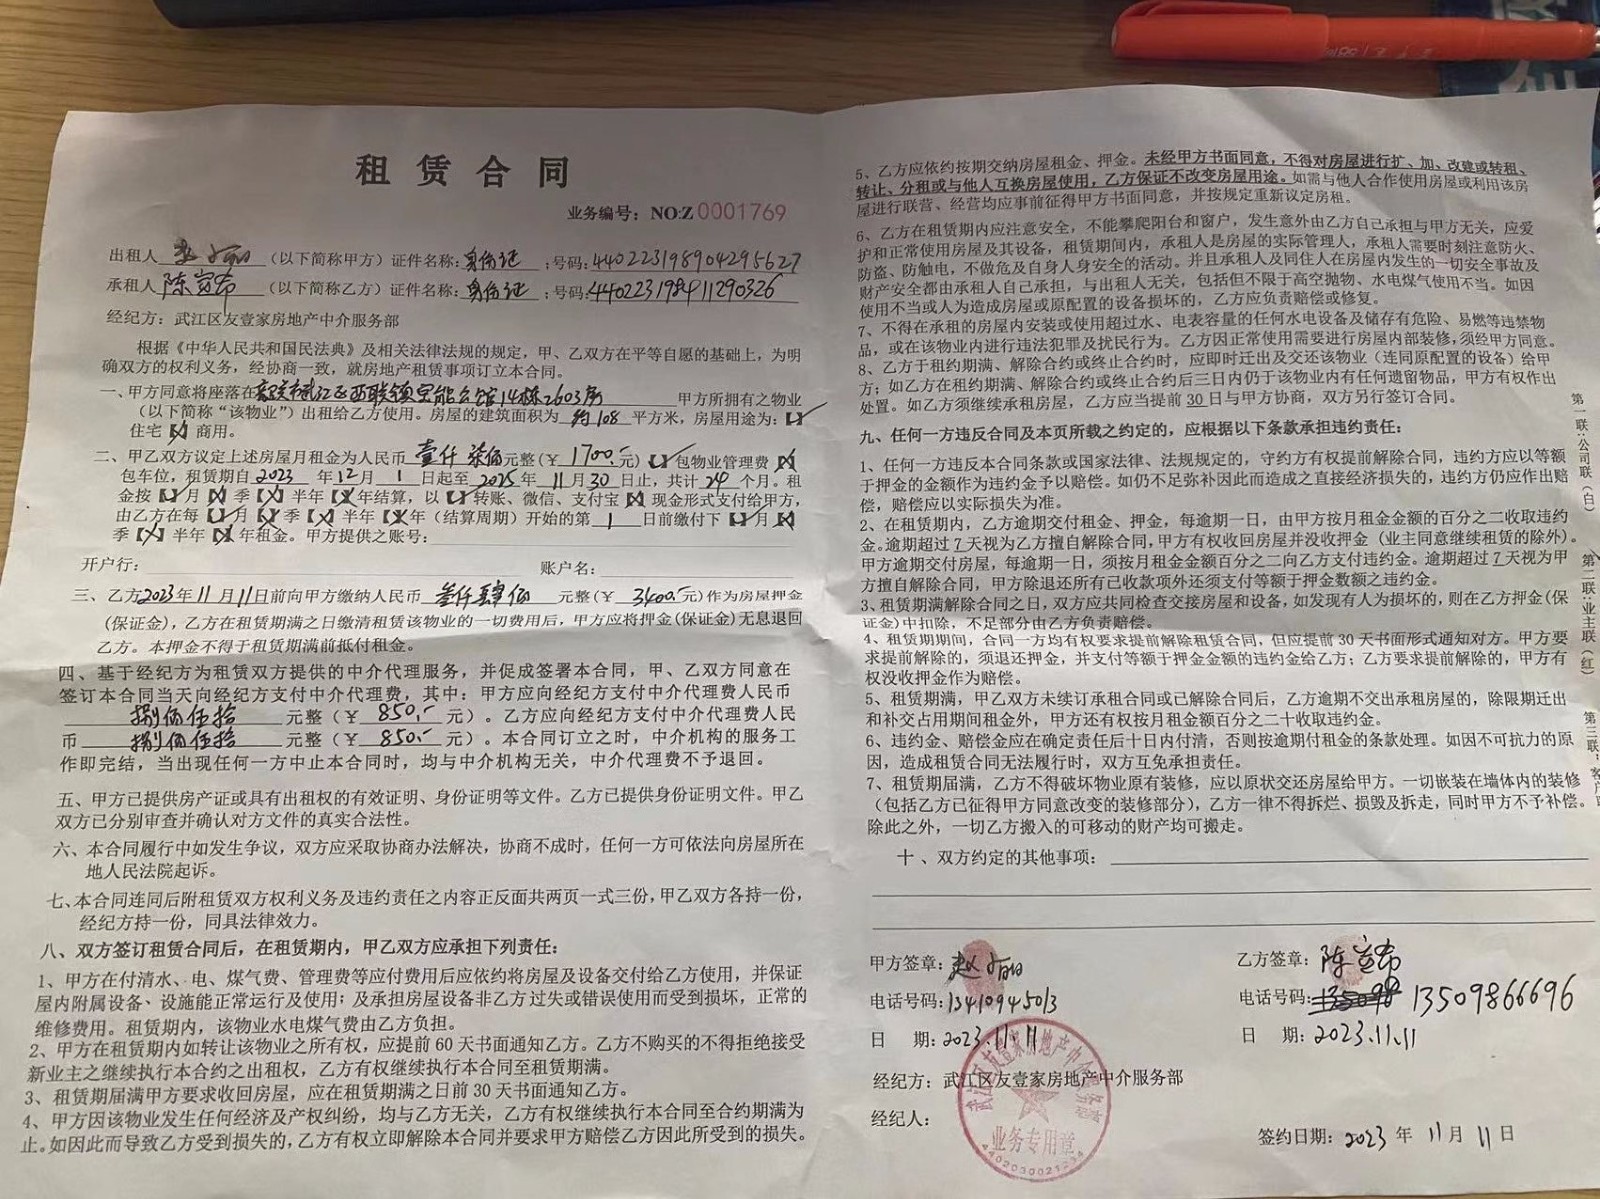 租赁合同
业务编号：NO:Z 0001769
出租人 赵 （以下简称甲方）证件名称：身份证 ；号码：440223198904295627
承租人 陈 （以下简称乙方）证件名称：身份证 ；号码：
经纪方：武江区友壹家房地产中介服务部
根据《中华人民共和国民法典》及相关法律法规的规定，甲、乙双方在平等自愿的基础上，为明
确双方的权利义务，经协商一致，就房地产租赁事项订立本合同。
一、甲方同意将座落在韶关市武江区西联镇 14栋2603房 甲方所拥有之物业
（以下简称“该物业”）出租给乙方使用。房屋的建筑面积为 约108 平方米，房屋用途为：【✓】
住宅【╳】商用。
二、甲乙双方议定上述房屋月租金为人民币 壹仟柒佰 元整（¥ 1700.- 元）【✓】包物业管理费【╳】
包车位，租赁期自 2023 年 12 月 1 日起至 2025 年 11 月 30 日止，共计 24 个月。租
金按【✓】月【╳】季【╳】半年【╳】年结算，以【✓】转账、微信、支付宝【╳】现金形式支付给甲方，
由乙方在每【✓】月【╳】季【╳】半年【╳】年（结算周期）开始的第 1 日前缴付下【✓】月【╳】
季【╳】半年【╳】年租金。甲方提供之账号：
开户行： 账户名：
三、乙方 2023 年 11 月 11 日前向甲方缴纳人民币 叁仟肆佰 元整（¥ 3400.- 元）作为房屋押金
（保证金），乙方在租赁期满之日缴清租赁该物业的一切费用后，甲方应将押金（保证金）无息退回
乙方。本押金不得于租赁期满前抵付租金。
四、基于经纪方为租赁双方提供的中介代理服务，并促成签署本合同，甲、乙双方同意在
签订本合同当天向经纪方支付中介代理费，其中：甲方应向经纪方支付中介代理费人民币
捌佰伍拾 元整（¥ 850.- 元）。乙方应向经纪方支付中介代理费人民
币 捌佰伍拾 元整（¥ 850.- 元）。本合同订立之时，中介机构的服务工
作即完结，当出现任何一方中止本合同时，均与中介机构无关，中介代理费不予退回。
五、甲方已提供房产证或具有出租权的有效证明、身份证明等文件。乙方已提供身份证明文件。甲乙
双方已分别审查并确认对方文件的真实合法性。
六、本合同履行中如发生争议，双方应采取协商办法解决，协商不成时，任何一方可依法向房屋所在
地人民法院起诉。
七、本合同连同后附租赁双方权利义务及违约责任之内容正反面共两页一式三份，甲乙双方各持一份，
经纪方持一份，同具法律效力。
八、双方签订租赁合同后，在租赁期内，甲乙双方应承担下列责任：
1、甲方在付清水、电、煤气费、管理费等应付费用后应依约将房屋及设备交付给乙方使用，并保证
屋内附属设备、设施能正常运行及使用；及承担房屋设备非乙方过失或错误使用而受到损坏，正常的
维修费用。租赁期内，该物业水电煤气费由乙方负担。
2、甲方在租赁期内如转让该物业之所有权，应提前 60 天书面通知乙方。乙方不购买的不得拒绝接受
新业主之继续执行本合约之出租权，乙方有权继续执行本合同至租赁期满。
3、租赁期届满甲方要求收回房屋，应在租赁期满之日前 30 天书面通知乙方。
4、甲方因该物业发生任何经济及产权纠纷，均与乙方无关，乙方有权继续执行本合同至合约期满为
止。如因此而导致乙方受到损失的，乙方有权立即解除本合同并要求甲方赔偿乙方因此所受到的损失。
5、乙方应依约按期交纳房屋租金、押金。未经甲方书面同意，不得对房屋进行扩、加、改建或转租、
转让、分租或与他人互换房屋使用，乙方保证不改变房屋用途。如需与他人合作使用房屋或利用该房
屋进行联营、经营均应事前征得甲方书面同意，并按规定重新议定房租。
6、乙方在租赁期内应注意安全，不能攀爬阳台和窗户，发生意外由乙方自己承担与甲方无关，应爱
护和正常使用房屋及其设备，租赁期间内，承租人是房屋的实际管理人，承租人需要时刻注意防火、
防盗、防触电，不做危及自身人身安全的活动。并且承租人及同住人在房屋内发生的一切安全事故及
财产安全都由承租人自己承担，与出租人无关，包括但不限于高空抛物、水电煤气使用不当。如因
使用不当或人为造成房屋或原配置的设备损坏的，乙方应负责赔偿或修复。
7、不得在承租的房屋内安装或使用超过水、电表容量的任何水电设备及储存有危险、易燃等违禁物
品，或在该物业内进行违法犯罪及扰民行为。乙方因正常使用需要进行房屋内部装修，须经甲方同意。
8、乙方于租约期满、解除合约或终止合约时，应即时迁出及交还该物业（连同原配置的设备）给甲
方；如乙方在租约期满、解除合约或终止合约后三日内仍于该物业内有任何遗留物品，甲方有权作出
处置。如乙方须继续承租房屋，乙方应当提前 30 日与甲方协商，双方另行签订合同。
九、任何一方违反合同及本页所载之约定的，应根据以下条款承担违约责任：
1、任何一方违反本合同条款或国家法律、法规规定的，守约方有权提前解除合同，违约方应以等额
于押金的金额作为违约金予以赔偿。如仍不足弥补因此而造成之直接经济损失的，违约方仍应作出赔
偿，赔偿应以实际损失为准。
2、在租赁期内，乙方逾期交付租金、押金，每逾期一日，由甲方按月租金金额的百分之二收取违约
金。逾期超过 7 天视为乙方擅自解除合同，甲方有权收回房屋并没收押金（业主同意继续租赁的除外）。
甲方逾期交付房屋，每逾期一日，须按月租金金额百分之二向乙方支付违约金。逾期超过 7 天视为甲
方擅自解除合同，甲方除退还所有已收款项外还须支付等额于押金数额之违约金。
3、租赁期满解除合同之日，双方应共同检查交接房屋和设备，如发现有人为损坏的，则在乙方押金（保
证金）中扣除，不足部分由乙方负责赔偿。
4、租赁期期间，合同一方均有权要求提前解除租赁合同，但应提前 30 天书面形式通知对方。甲方要
求提前解除的，须退还押金，并支付等额于押金金额的违约金给乙方；乙方要求提前解除的，甲方有
权没收押金作为赔偿。
5、租赁期满，甲乙双方未续订承租合同或已解除合同后，乙方逾期不交出承租房屋的，除限期迁出
和补交占用期间租金外，甲方还有权按月租金额百分之二十收取违约金。
6、违约金、赔偿金应在确定责任后十日内付清，否则按逾期付租金的条款处理。如因不可抗力的原
因，造成租赁合同无法履行时，双方互免承担责任。
7、租赁期届满，乙方不得破坏物业原有装修，应以原状交还房屋给甲方。一切嵌装在墙体内的装修
（包括乙方已征得甲方同意改变的装修部分），乙方一律不得拆烂、损毁及拆走，同时甲方不予补偿。
除此之外，一切乙方搬入的可移动的财产均可搬走。
十、双方约定的其他事项：
甲方签章：赵
乙方签章：陈
电话号码：13410945013
电话号码：13509866696
日 期：2023.11.11
日 期：2023.11.11
经纪方：武江区友壹家房地产中介服务部
经纪人：
签约日期：2023 年 11 月 11 日
武江区友壹家房地产中介服务部
业务专用章
第一联：公司联（白）
第二联：业主联（红）
第三联：客户